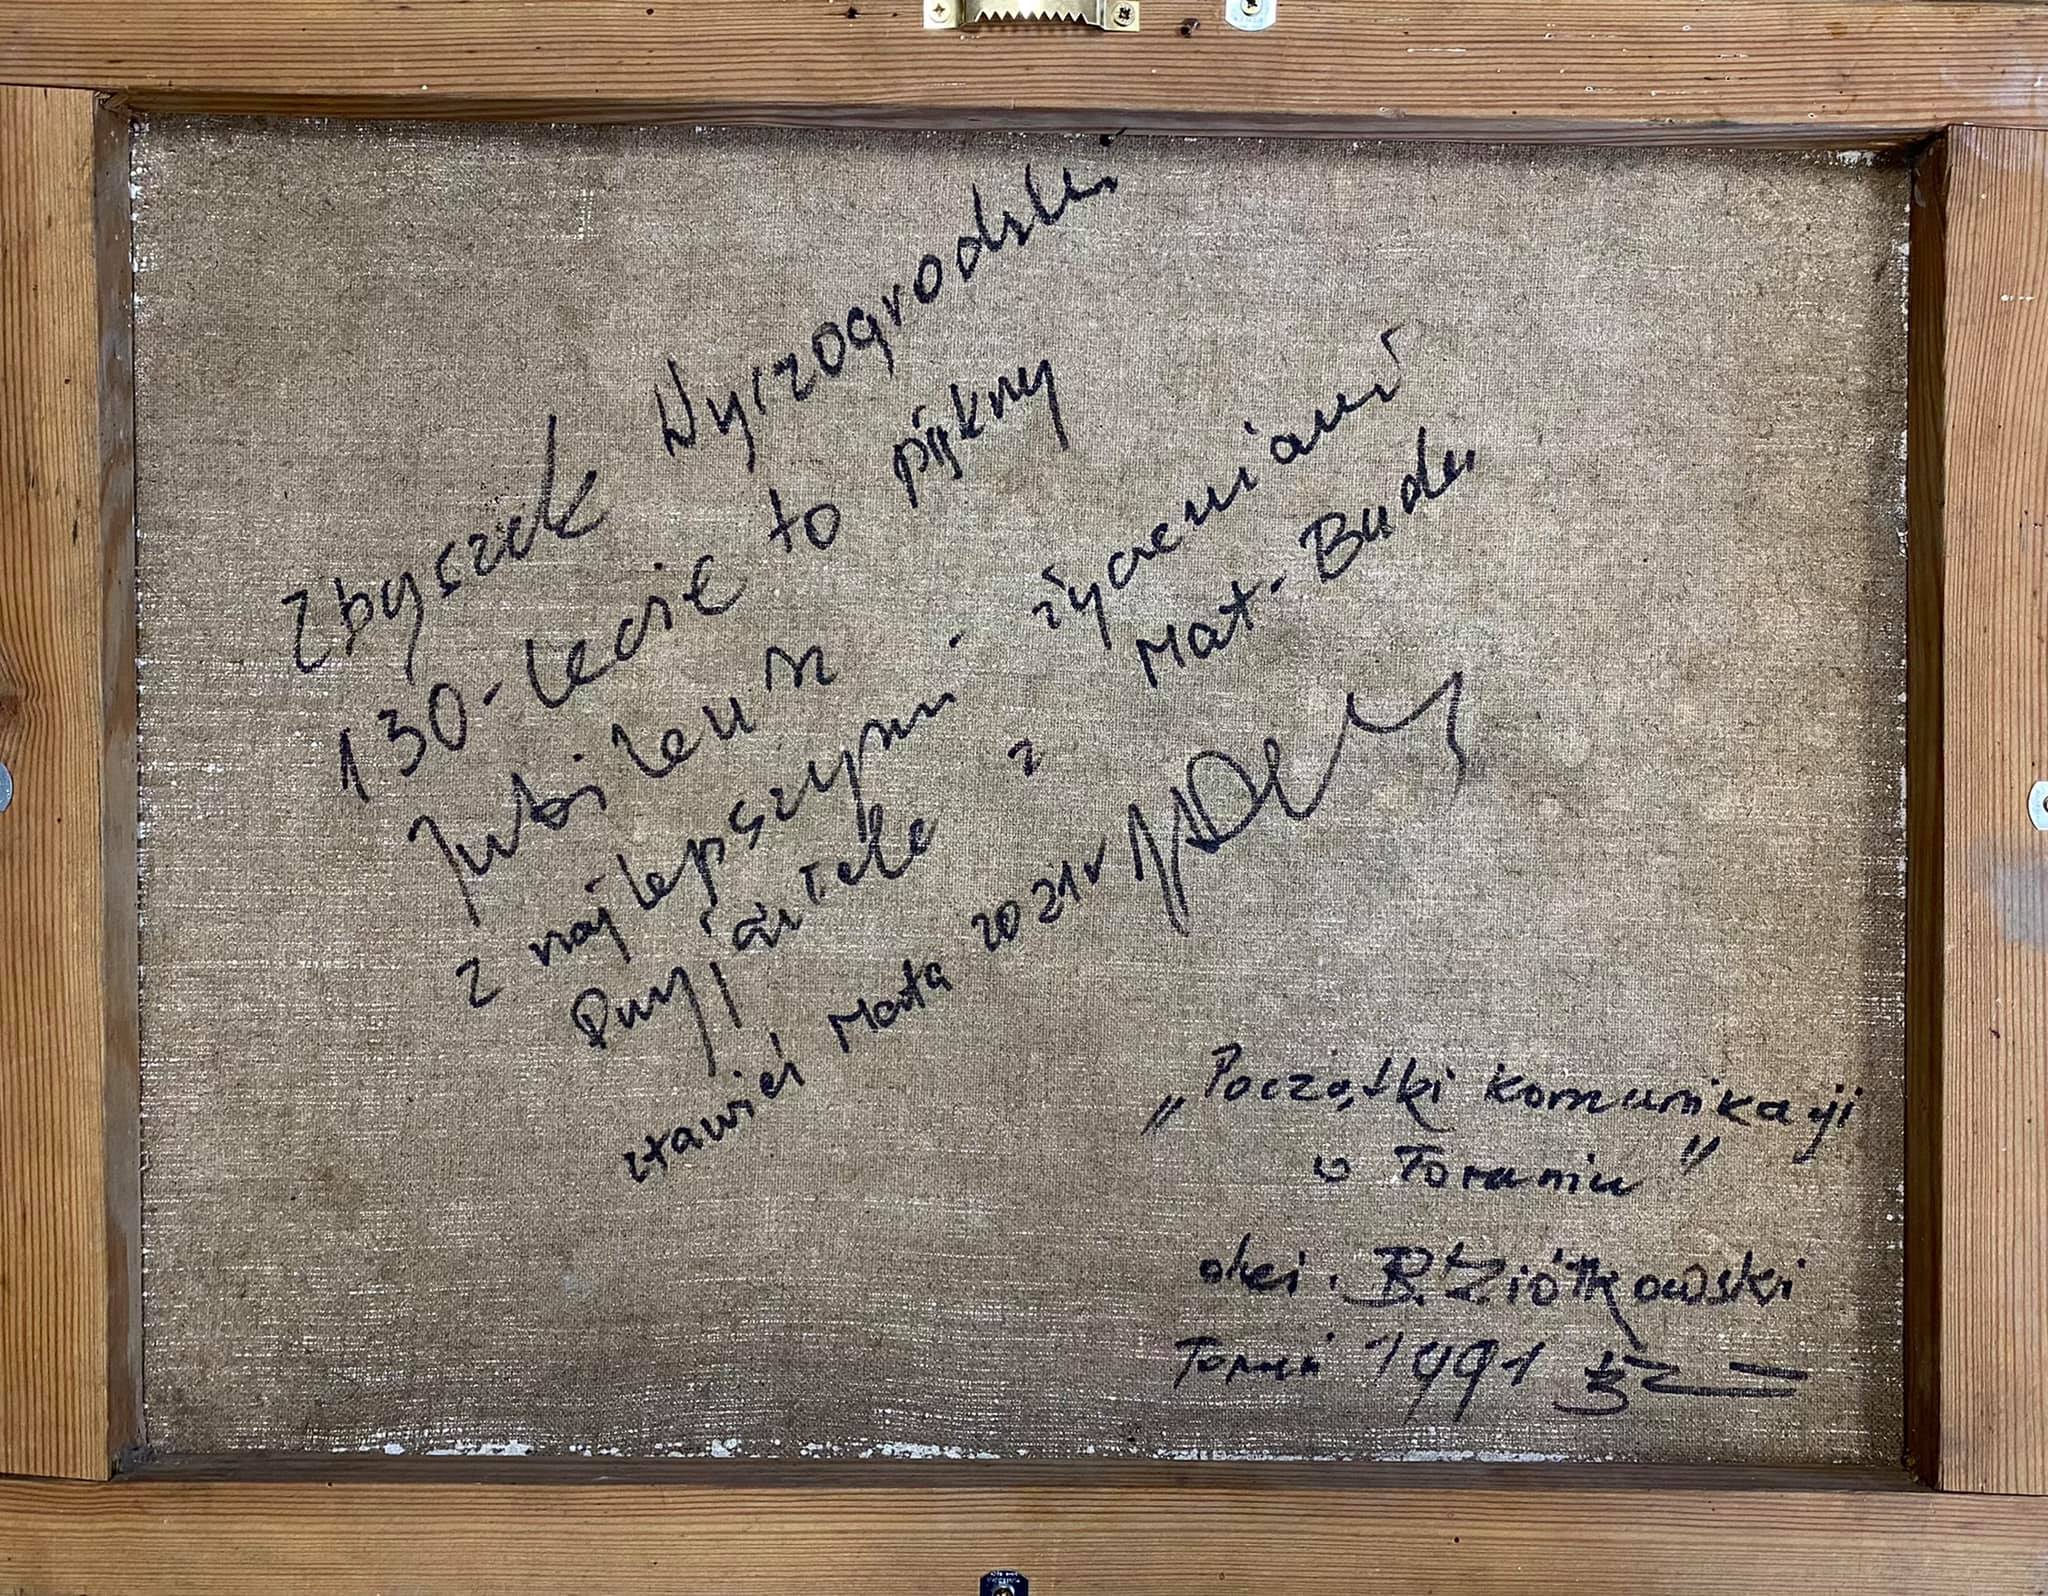 Zbyszek Wyszogrodzki
130-lecie to piękny
Jubileusz
z najlepszymi życzeniami
Przyjaciele z Mat-Budu
stawień Marta 2021r
"Początki komunikacji
w Toruniu"
olej. B. Ziółkowski
Toruń 1991